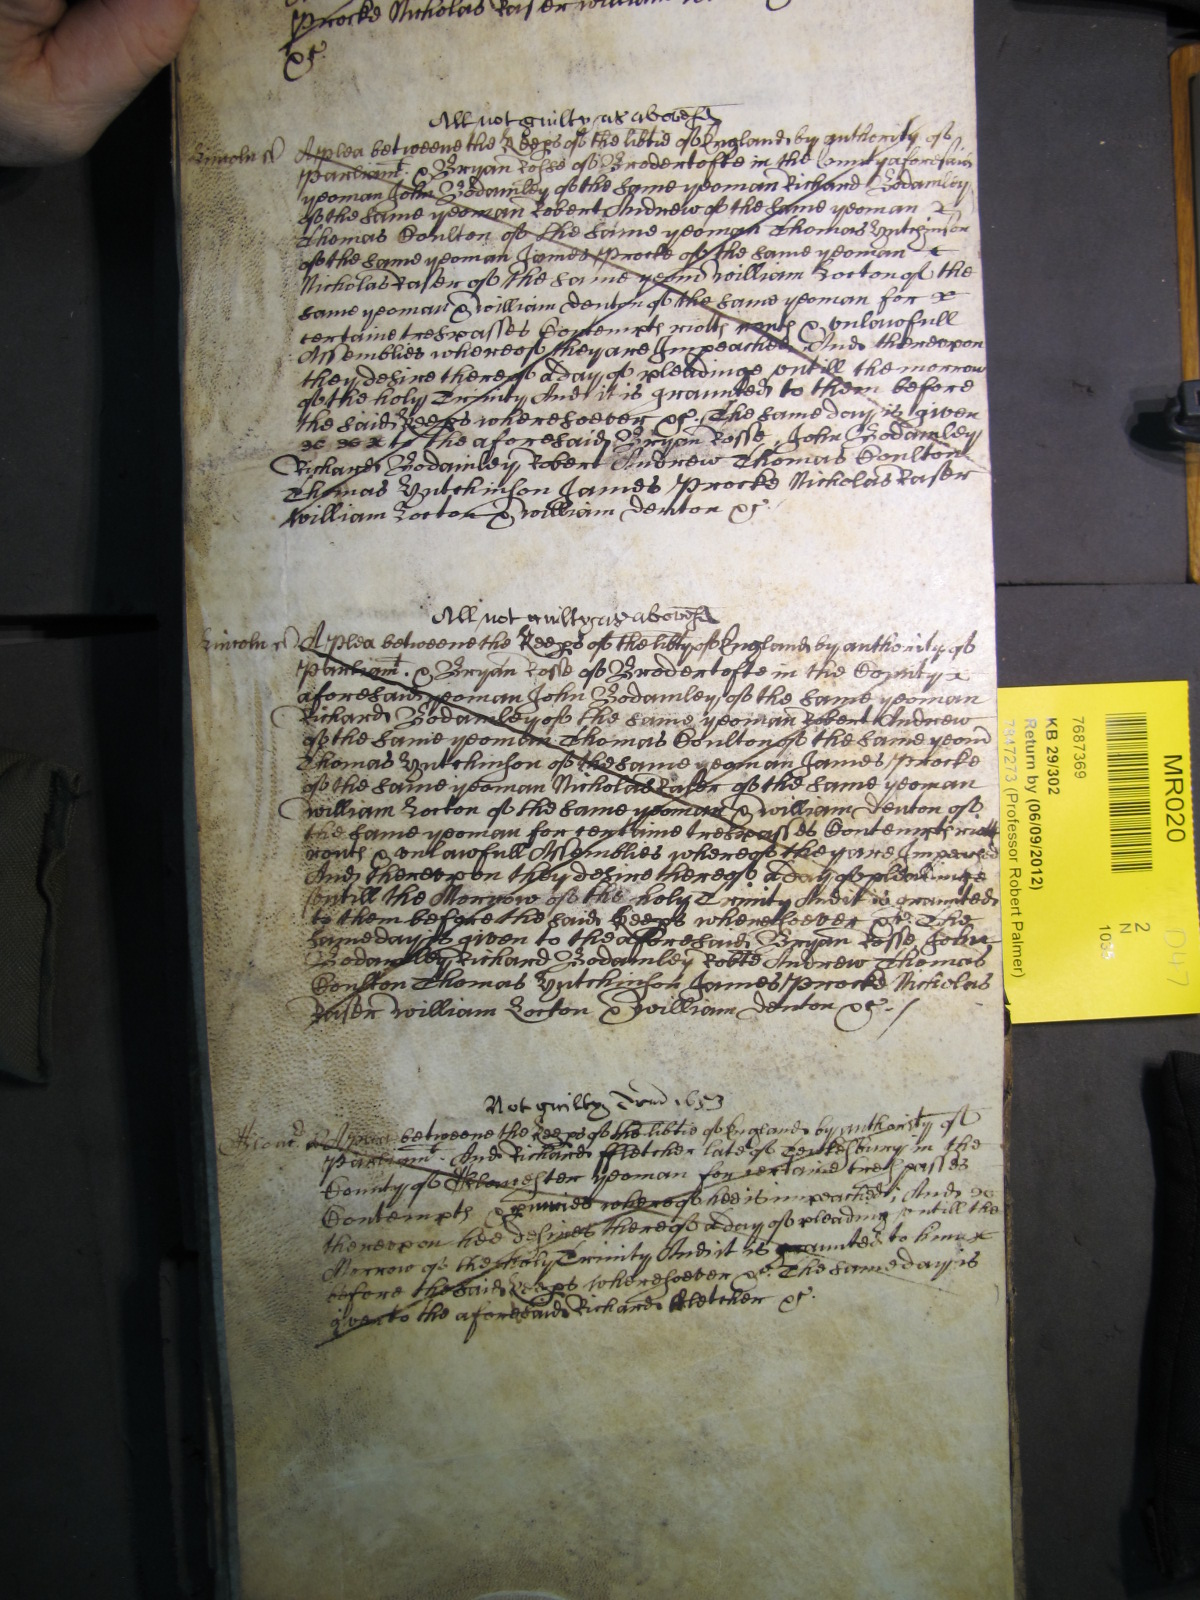 Procke Nicholas Raser William
&c
All not guilty as abovesd
Lincoln ss A plea betweene the Keeps of the libtie of England by authority of
Parliamt. & Bryan Rosse of Brodertofte in the County aforesaid
yeoman John Bodamley of the same yeoman Richard Bodamley
of the same yeoman Robert Andrew of the same yeoman
Thomas Coulton of the same yeoman Thomas Hutchinson
of the same yeoman James Procke of the same yeoman
Nicholas Raser of the same yeom William Locton of the
same yeoman & William Denton of the same yeoman for
certaine trespasses Contempts riotts routs & unlawfull
Assemblies whereof they are Impeached And thereupon
they desire thereof a day of pleadinge untill the morrow
of the holy Trinity And it is graunted to them before
the said Keeps wheresoever &c. The same day is given
to the aforesaid Bryan Rosse, John Bodamley
Richard Bodamley Robert Andrew Thomas Coulton
Thomas Hutchinson James Procke Nicholas Raser
William Locton & William Denton &c.
All not guilty as abovesd
Lincoln ss A plea betweene the Keeps of the libty of England by authority of
Parliamt. & Bryan Rosse of Brodertofte in the County
aforesaid yeoman John Bodamley of the same yeoman
Richard Bodamley of the same yeoman Robert Andrew
of the same yeoman Thomas Coulton of the same yeom
Thomas Hutchinson of the same yeoman James Procke
of the same yeoman Nicholas Raser of the same yeoman
William Locton of the same yeoman & William Denton of
the same yeoman for certaine trespasses Contempts riotts
routs & unlawfull Assemblies whereof they are Impeached
And thereupon they desire thereof a day of pleadinge
untill the Morrow of the holy Trinity And it is graunted
to them before the said Keeps wheresoever &c. The
same day is given to the afforesaid Bryan Rosse John
Bodamley Richard Bodamley Robte Andrew Thomas
Coulton Thomas Hutchinson James Procke Nicholas
Raser William Locton & William Denton &c. /
Not guilty Trin 1653
A plea betweene the Keeps of the libtie of England by authority of
Parliamt. And Richard Ffletcher late of Tewkesbury in the
County of Glouchester yeoman for certaine trespasses
Contempts & whereof hee is impeached, And
thereupon hee desires thereof a day of pleading untill the
Morrow of the holy Trinity And it is graunted to him
before the said Keeps wheresoever &c. The same day is
given to the aforesaid Richard Ffletcher &c.
MR020
2
N
1035
D47
7687369
KB 29/302
Return by (06/09/2012)
7347273 (Professor Robert Palmer)